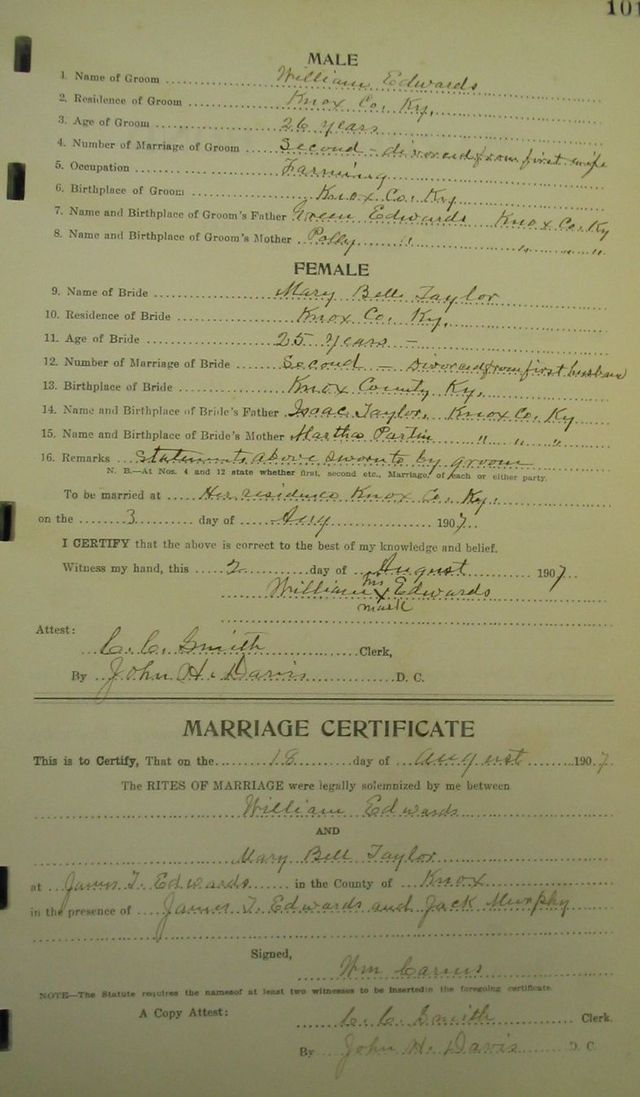 101
MALE
1. Name of Groom William Edwards
2. Residence of Groom Knox Co. Ky.
3. Age of Groom 26 years
4. Number of Marriage of Groom Second - divorced from first wife
5. Occupation Farming
6. Birthplace of Groom Knox Co. Ky
7. Name and Birthplace of Groom's Father Green Edwards Knox Co. Ky
8. Name and Birthplace of Groom's Mother Polly " " " "
FEMALE
9. Name of Bride Mary Bell Taylor
10. Residence of Bride Knox Co. Ky.
11. Age of Bride 25 years -
12. Number of Marriage of Bride Second - Divorced from first husband
13. Birthplace of Bride Knox County Ky.
14. Name and Birthplace of Bride's Father Isaac Taylor, Knox Co. Ky
15. Name and Birthplace of Bride's Mother Martha Partin " " "
16. Remarks Statements above sworn to by groom
N. B.—At Nos. 4 and 12 state whether first, second etc., Marriage, of each or either party.
To be married at Her residence Knox Co. Ky.
on the 3 day of Aug 1907
I CERTIFY that the above is correct to the best of my knowledge and belief.
Witness my hand, this 2 day of August 1907
his
William X Edwards
mark
Attest:
C. C. Smith Clerk,
By John H. Davis D. C.
MARRIAGE CERTIFICATE
This is to Certify, That on the 18 day of August 1907
The RITES OF MARRIAGE were legally solemnized by me between
William Edwards
AND
Mary Bell Taylor
at James T. Edwards in the County of Knox
in the presence of James T. Edwards and Jack Murphy
Signed,
Wm
NOTE—The Statute requires the names of at least two witnesses to be inserted in the foregoing certificate.
A Copy Attest: C. C. Smith Clerk.
By John H. Davis D. C.